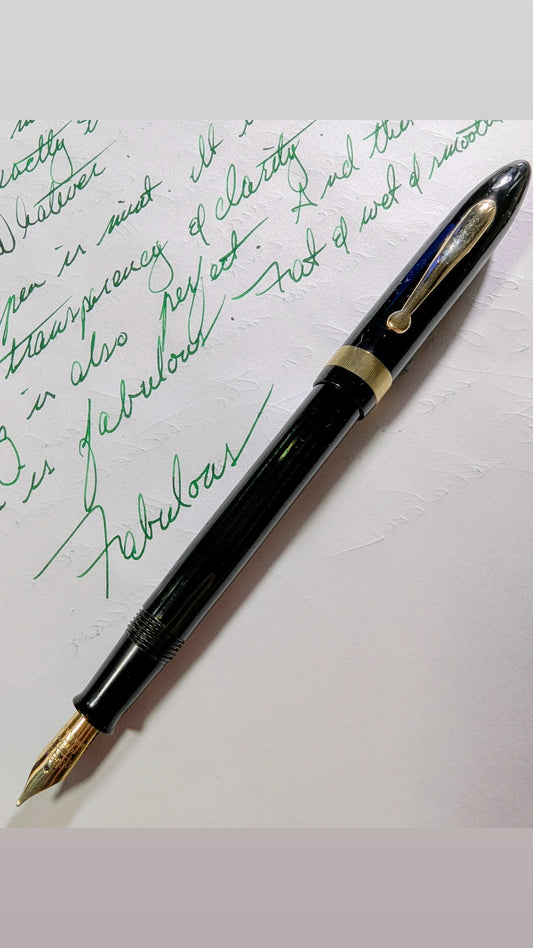 exactly
Whatever
pen is mint. It
transparency & clarity.
is also perfect. And the
is fabulous - Fat & wet & smooth
Fabulous